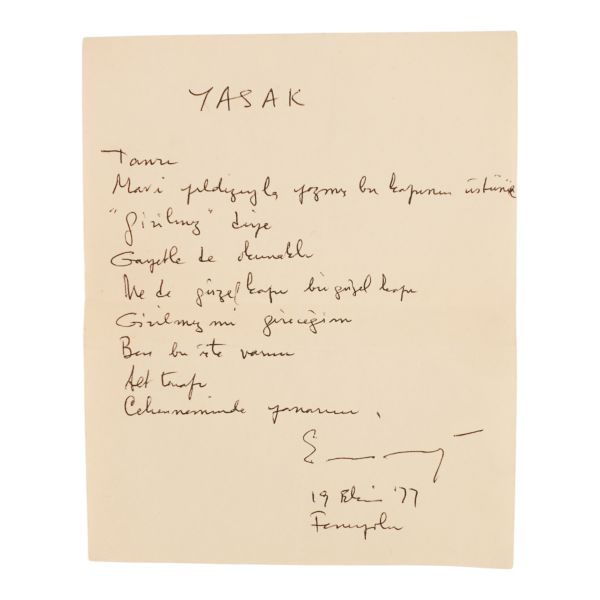 YASAK
Tanrı
Mavi yıldızıyla yazmış bu kapının üstüne
"girilmez" diye
Gayetle de okunaklı
Ne de güzel kapı bir güzel kapı
Girilmez mi gireceğim
Ben bu işte varım
Alt tarafı
Cehenneminde yanarım.
19 Ekim '77
Feneryolu